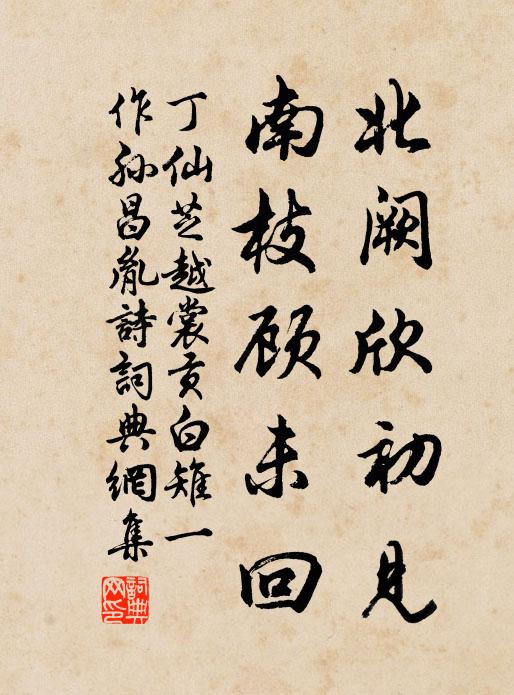 北阙欣初见
南枝顾未回
丁仙芝越裳贡白雉一
作孙昌胤詩詞典網集
詞典網印